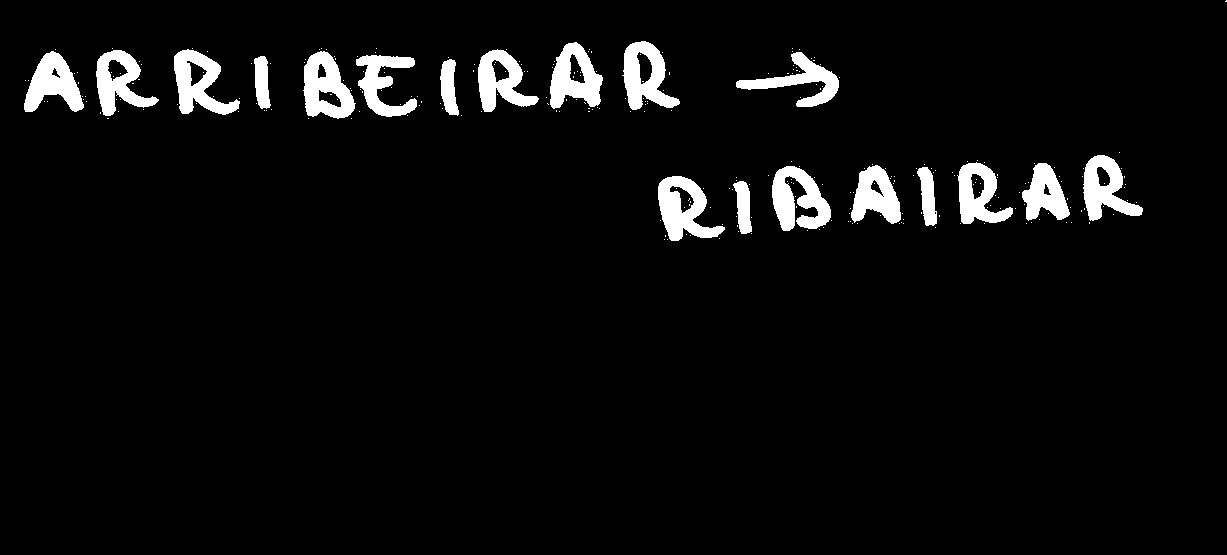 ARRIBEIRAR →
RIBAIRAR